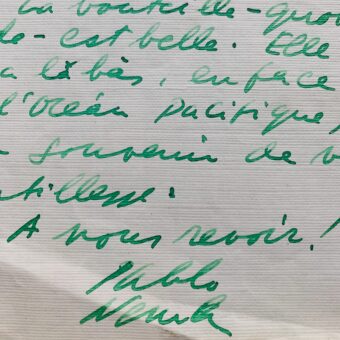 La bouteille-
de-est belle. Elle
a là bàs, en face
l'océan pacifique,
souvenir de v
tillesse.
A vous revoir!
Pablo
Neruda